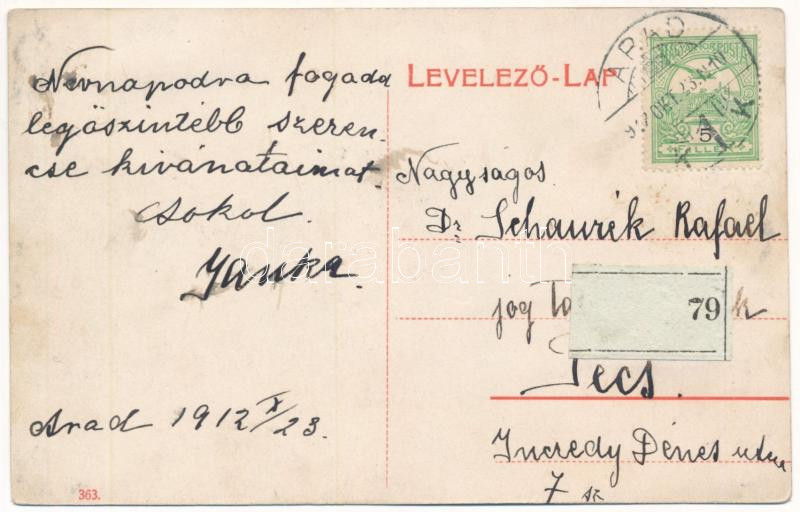 Nevnapodra fogadd
legöszintébb szeren-
cse kivánataimat.
csokol
Yanka.
Arad 1912 X/23.
363.
LEVELEZŐ-LAP
ARAD
MAGYAR KIR. POSTA
5
FILLÉR
Nagyságos
Dr. Schaurék Rafael
jog
79
Pécs.
Inczedy Dénes utca
7 sz
darabanth